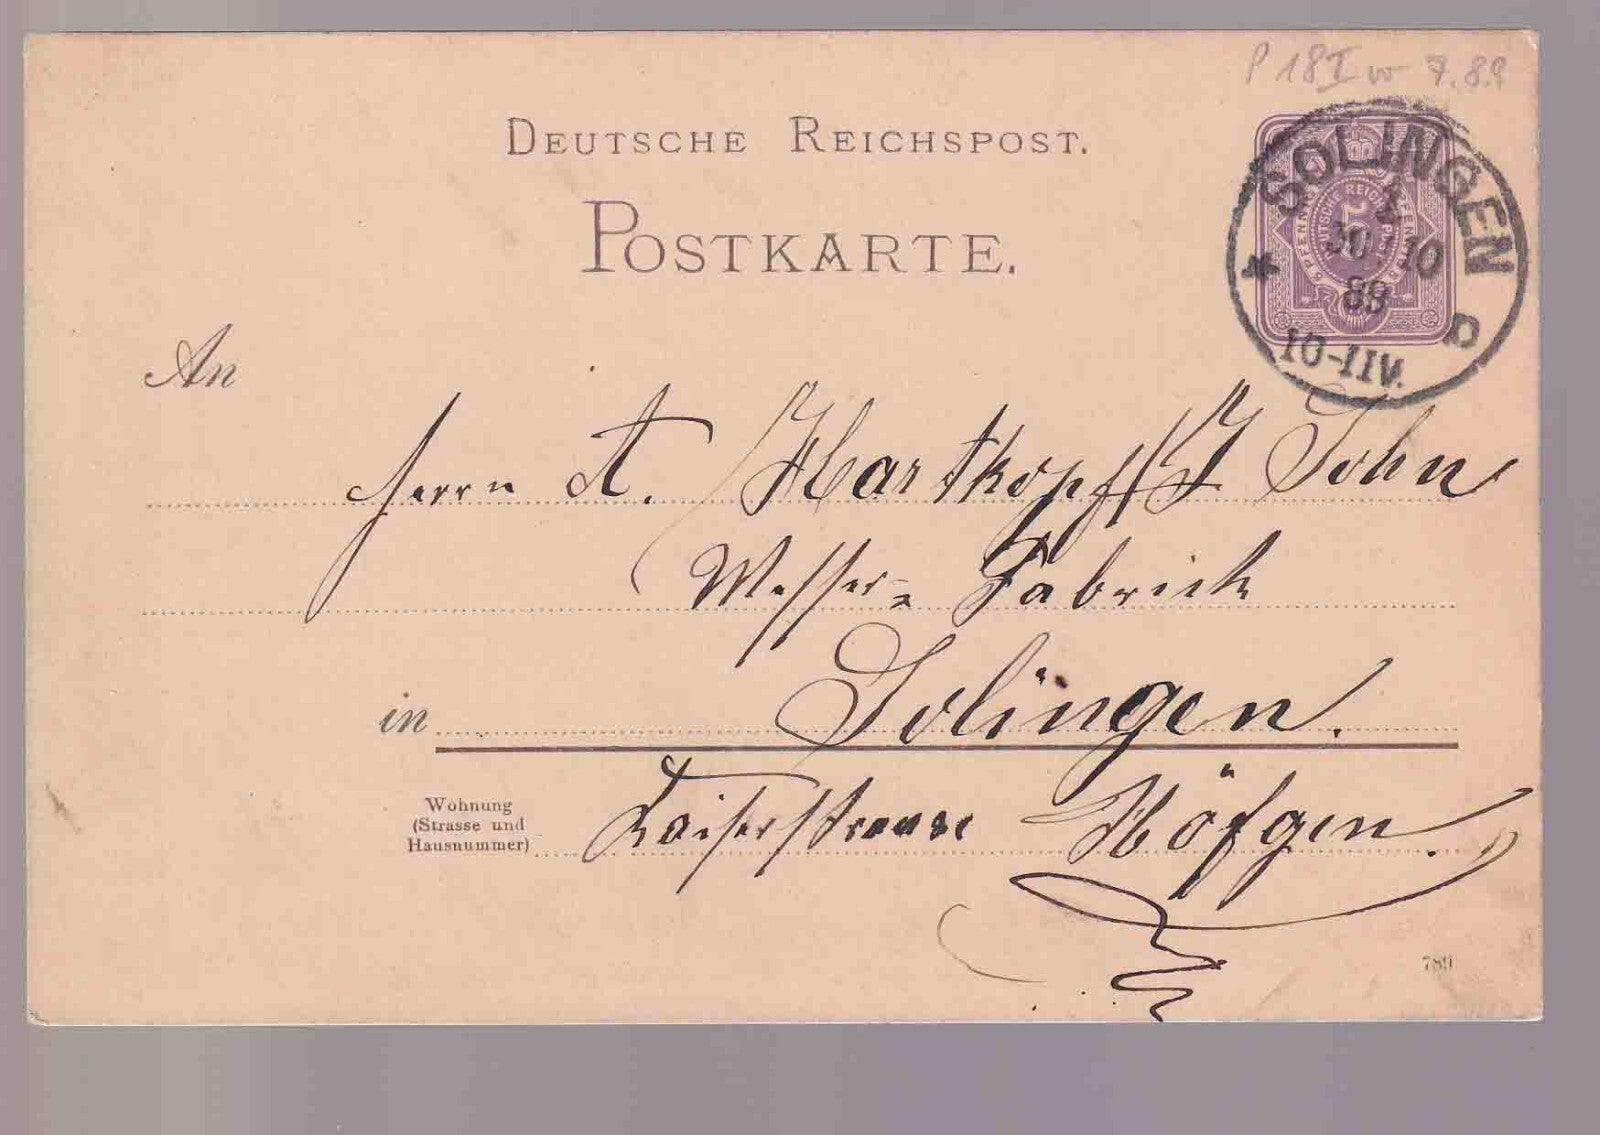 P 18 I w 7.89
DEUTSCHE REICHSPOST.
POSTKARTE.
SOLINGEN
30 10
89
10-11V.
An
Herrn A. Hartkopf J Sohn
Messer= Fabrick
in Solingen.
Wohnung
(Strasse und
Hausnummer)
Kaiserstrasse Höfgen.
789